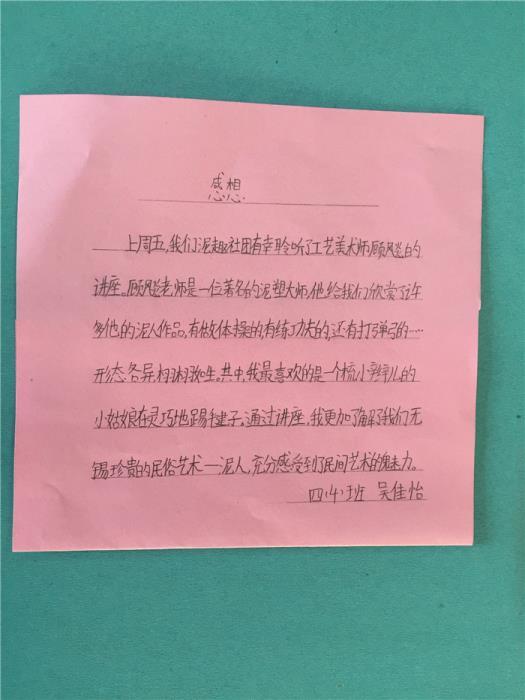 感想
上周五,我们泥趣社团有幸聆听了工艺美术师顾风造的
讲座。顾风造老师是一位著名的泥塑大师,他给我们欣赏了许
多他的泥人作品,有做体操的,有练功夫的,还有打弹弓的……
形态各异,栩栩如生。其中,我最喜欢的是一个梳小辫儿的
小姑娘在灵巧地踢毽子。通过讲座,我更加了解了我们无
锡珍贵的民俗艺术—泥人,充分感受到了民间艺术的魅力。
四(4)班 吴佳怡